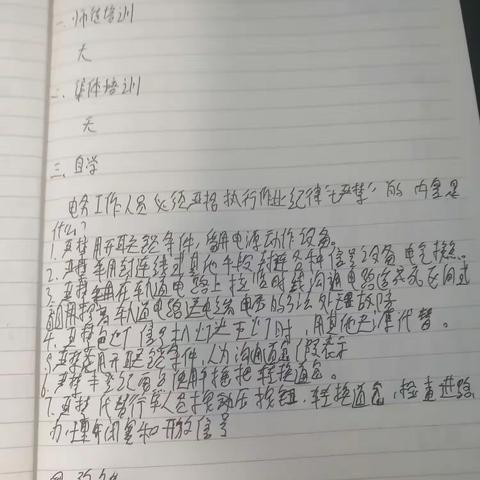 一.师徒培训
无
二.集体培训
无
三.自学
电务工作人员必须严格执行作业纪律"七严禁"的内容是
什么?
1.严禁甩开联锁条件,借用电源动作设备。
2.严禁采用封连线或其他手段封连各种信号设备电气接点。
3.严禁采用在轨道电路上拉临时线沟通电路造成死区间或
盲目用提高轨道电路送电端电压的方法处理故障
4.严禁色灯信号机灯光灭灯时,用其他光源代替。
5.严禁甩开联锁条件,人为沟通道岔假表示
6.严禁未登记要点使用手摇把转换道岔。
7.严禁代替行车人员按动压按钮、转换道岔,检查进路
办理闭塞和开放信号